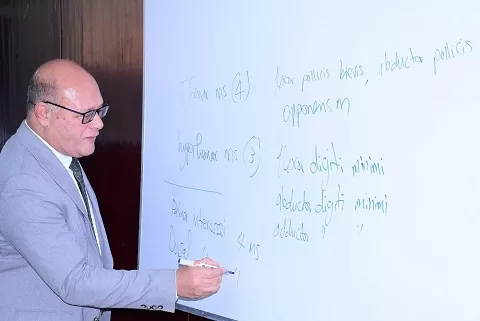 Thenar ms (4) flexor pollicis brevis, abductor pollicis
opponens m
hypothenar ms (3) flexor digiti minimi
abductor digiti minimi
adductor " "
Palmar interossei 4 ms
Dorsal "